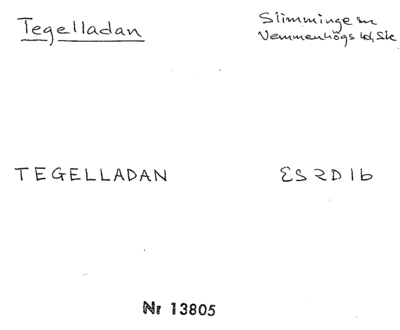 Tegelladan
Slimminge sn
Vemmenhögs hd, Sk
TEGELLADAN
ES 2D 1b
Nr 13805